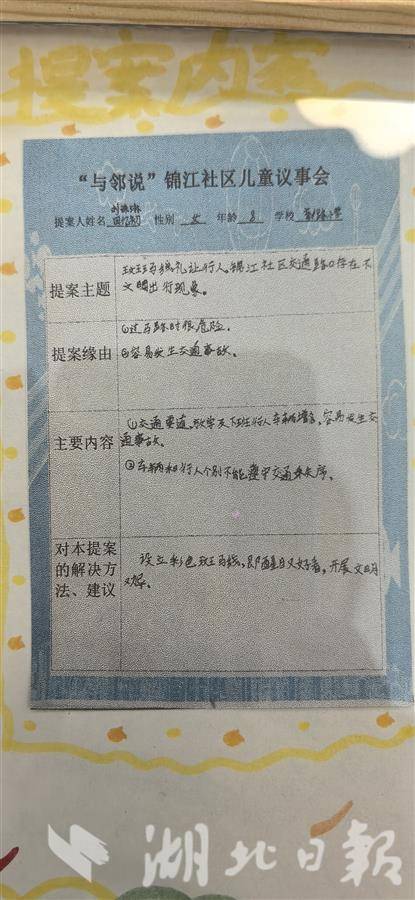 提案内容
“与邻说”锦江社区儿童议事会
提案人姓名 性别 女 年龄 8 学校 小学
提案主题
斑马线礼让行人,锦江社区交通路口存在不
文明出行现象。
提案缘由
①过马路时很危险。
②容易发生交通事故。
主要内容
①交通要道,放学及下班行人车辆增多,容易发生交
通事故。
②车辆和行人个别不能遵守交通秩序。
对本提案
的解决方
法、建议
设立彩色斑马线,即醒目又好看,开展文明
湖北日報